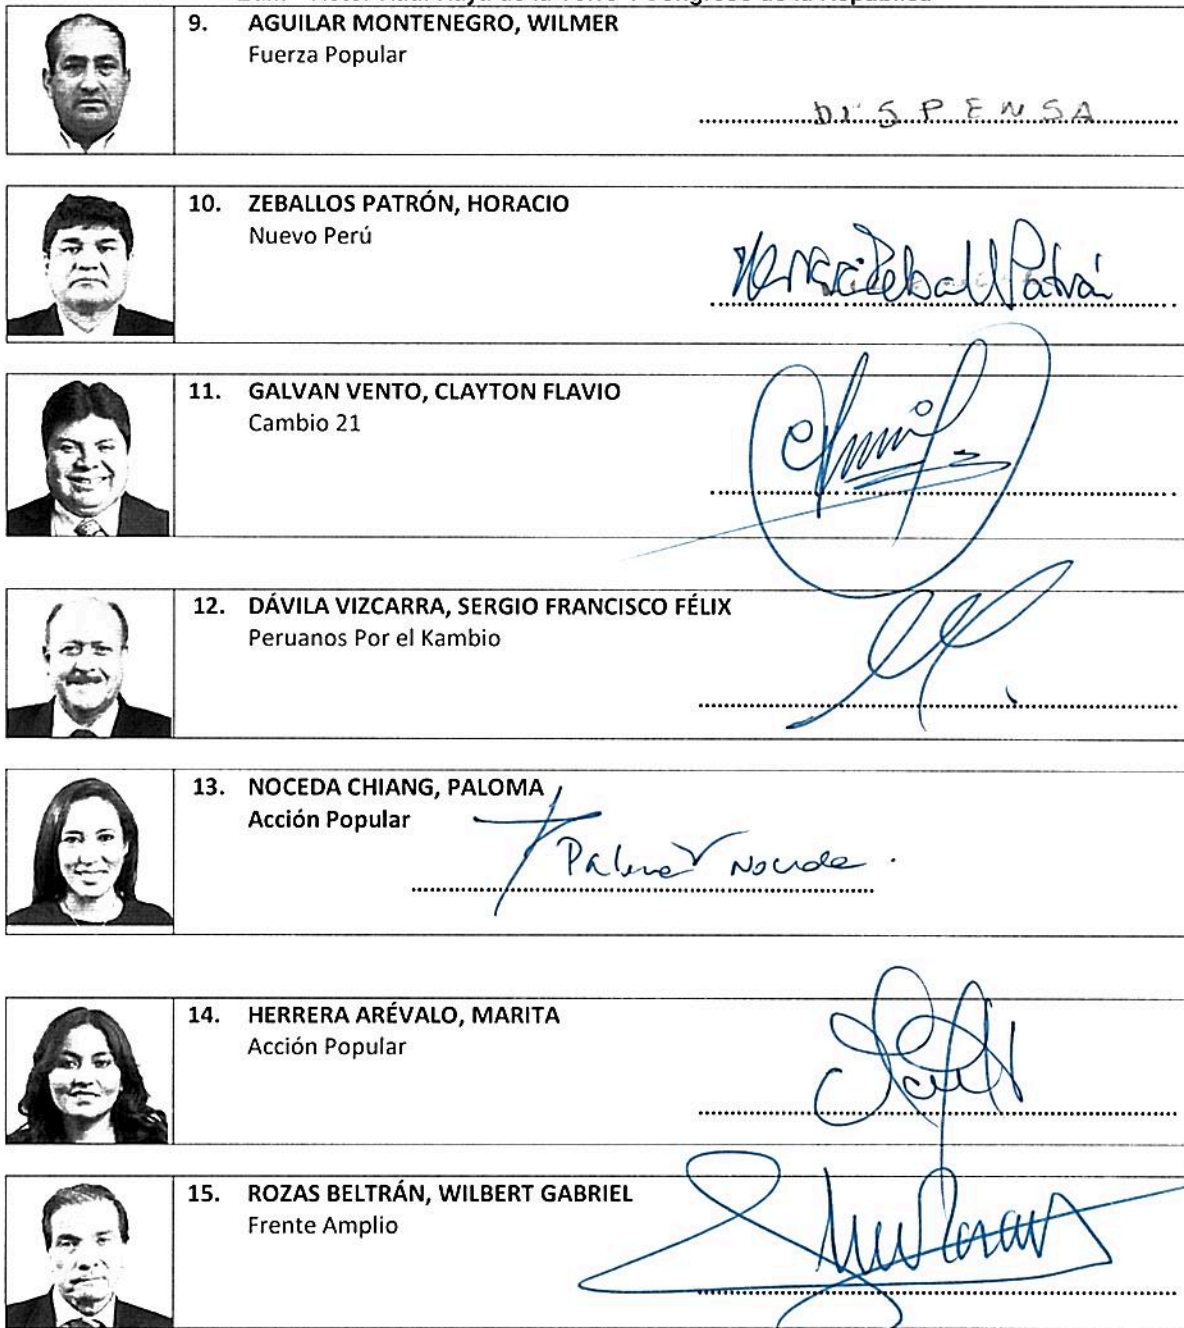 9. AGUILAR MONTENEGRO, WILMER
Fuerza Popular
DISPENSA
10. ZEBALLOS PATRÓN, HORACIO
Nuevo Perú
11. GALVAN VENTO, CLAYTON FLAVIO
Cambio 21
12. DÁVILA VIZCARRA, SERGIO FRANCISCO FÉLIX
Peruanos Por el Kambio
13. NOCEDA CHIANG, PALOMA
Acción Popular
Paloma Noceda.
14. HERRERA ARÉVALO, MARITA
Acción Popular
15. ROZAS BELTRÁN, WILBERT GABRIEL
Frente Amplio